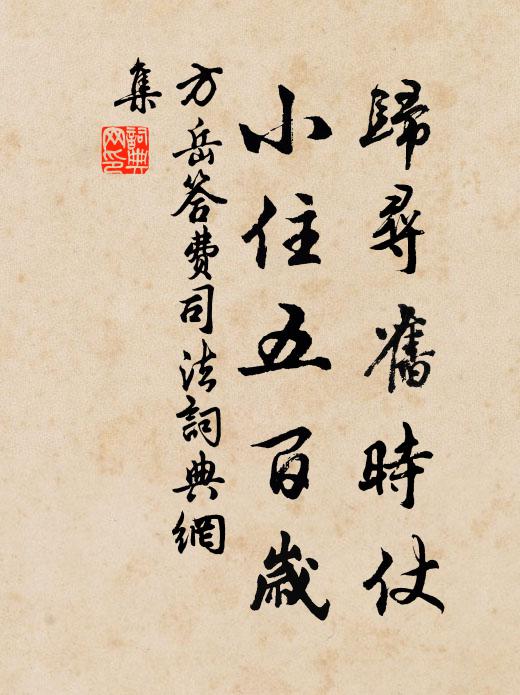 歸尋舊時仗
小住五百歲
方岳答費司法詞典網
集
詞典网印